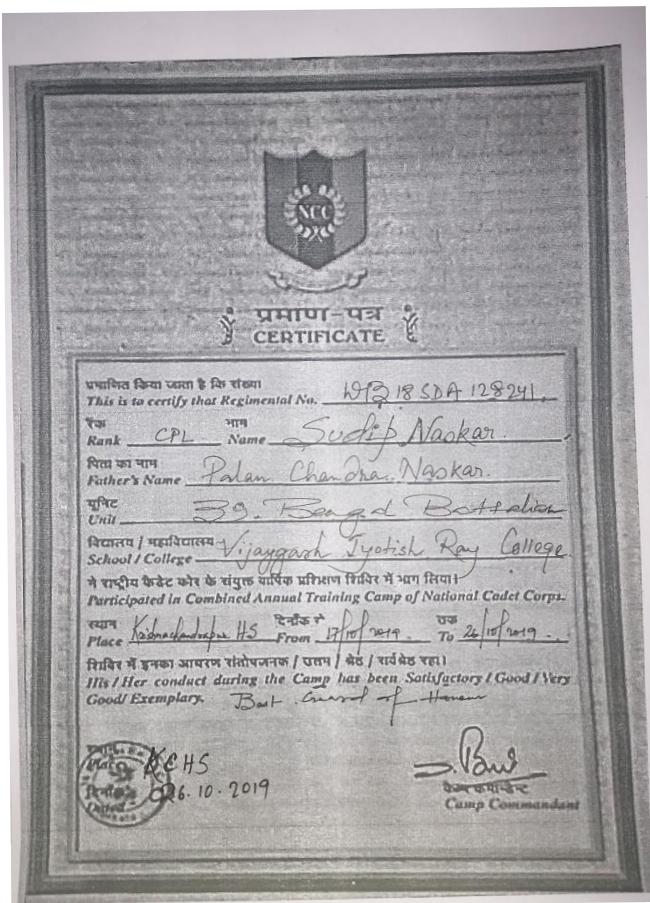 NCC
प्रमाण-पत्र
CERTIFICATE
प्रमाणित किया जाता है कि संख्या
This is to certify that Regimental No. WB 18 SDA 128241.
रैंक नाम
Rank CPL Name Sudip Naskar.
पिता का नाम
Father's Name Palan Chandra Naskar.
यूनिट
Unit 39. Bengal Battalion
विद्यालय / महाविद्यालय
School / College Vijaygarh Jyotish Ray College
ने राष्ट्रीय कैडेट कोर के संयुक्त वार्षिक प्रशिक्षण शिविर में भाग लिया।
Participated in Combined Annual Training Camp of National Cadet Corps.
स्थान दिनाँक से तक
Place Krishnachandrapur HS From 17/10/2019 To 26/10/2019
शिविर में इनका आचरण संतोषजनक / उत्तम / श्रेष्ठ / सर्वश्रेष्ठ रहा।
His / Her conduct during the Camp has been Satisfactory / Good / Very
Good / Exemplary. Best Guard of Honour
KCHS
दिनाँक 26.10.2019
Dated
कैम्प कमान्डेन्ट
Camp Commandant